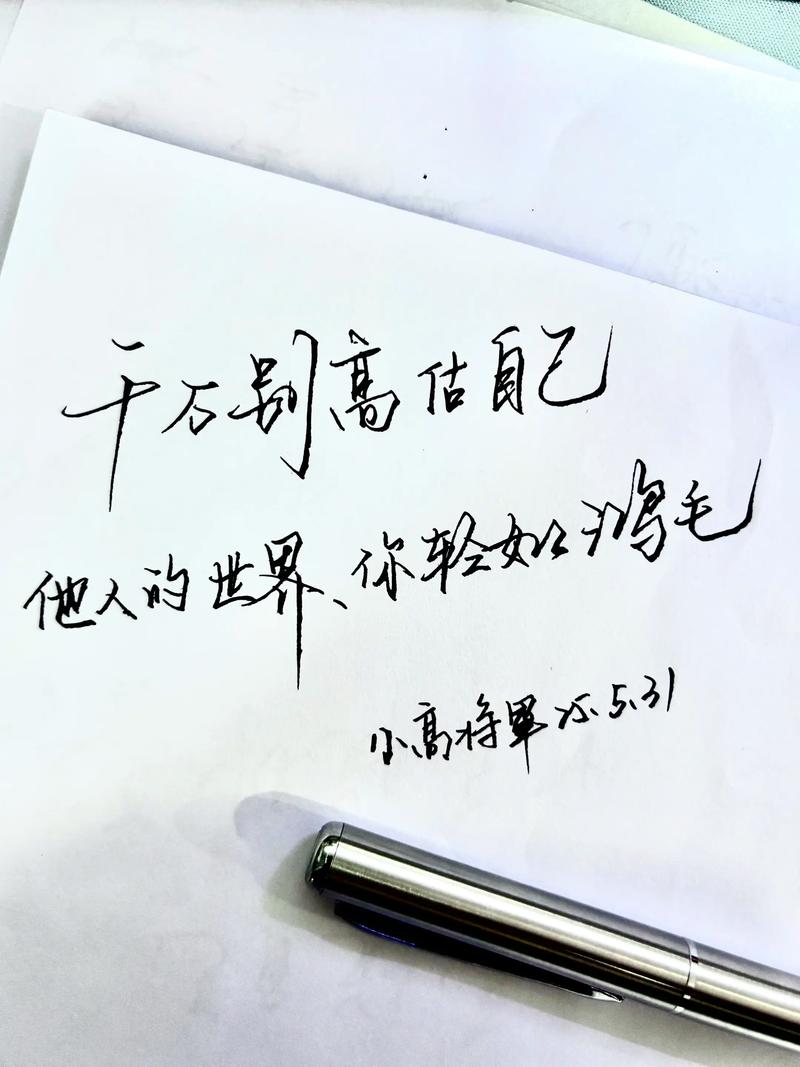 千万别高估自己
他人的世界、你轻如鸿毛
小高将军 25.5.31